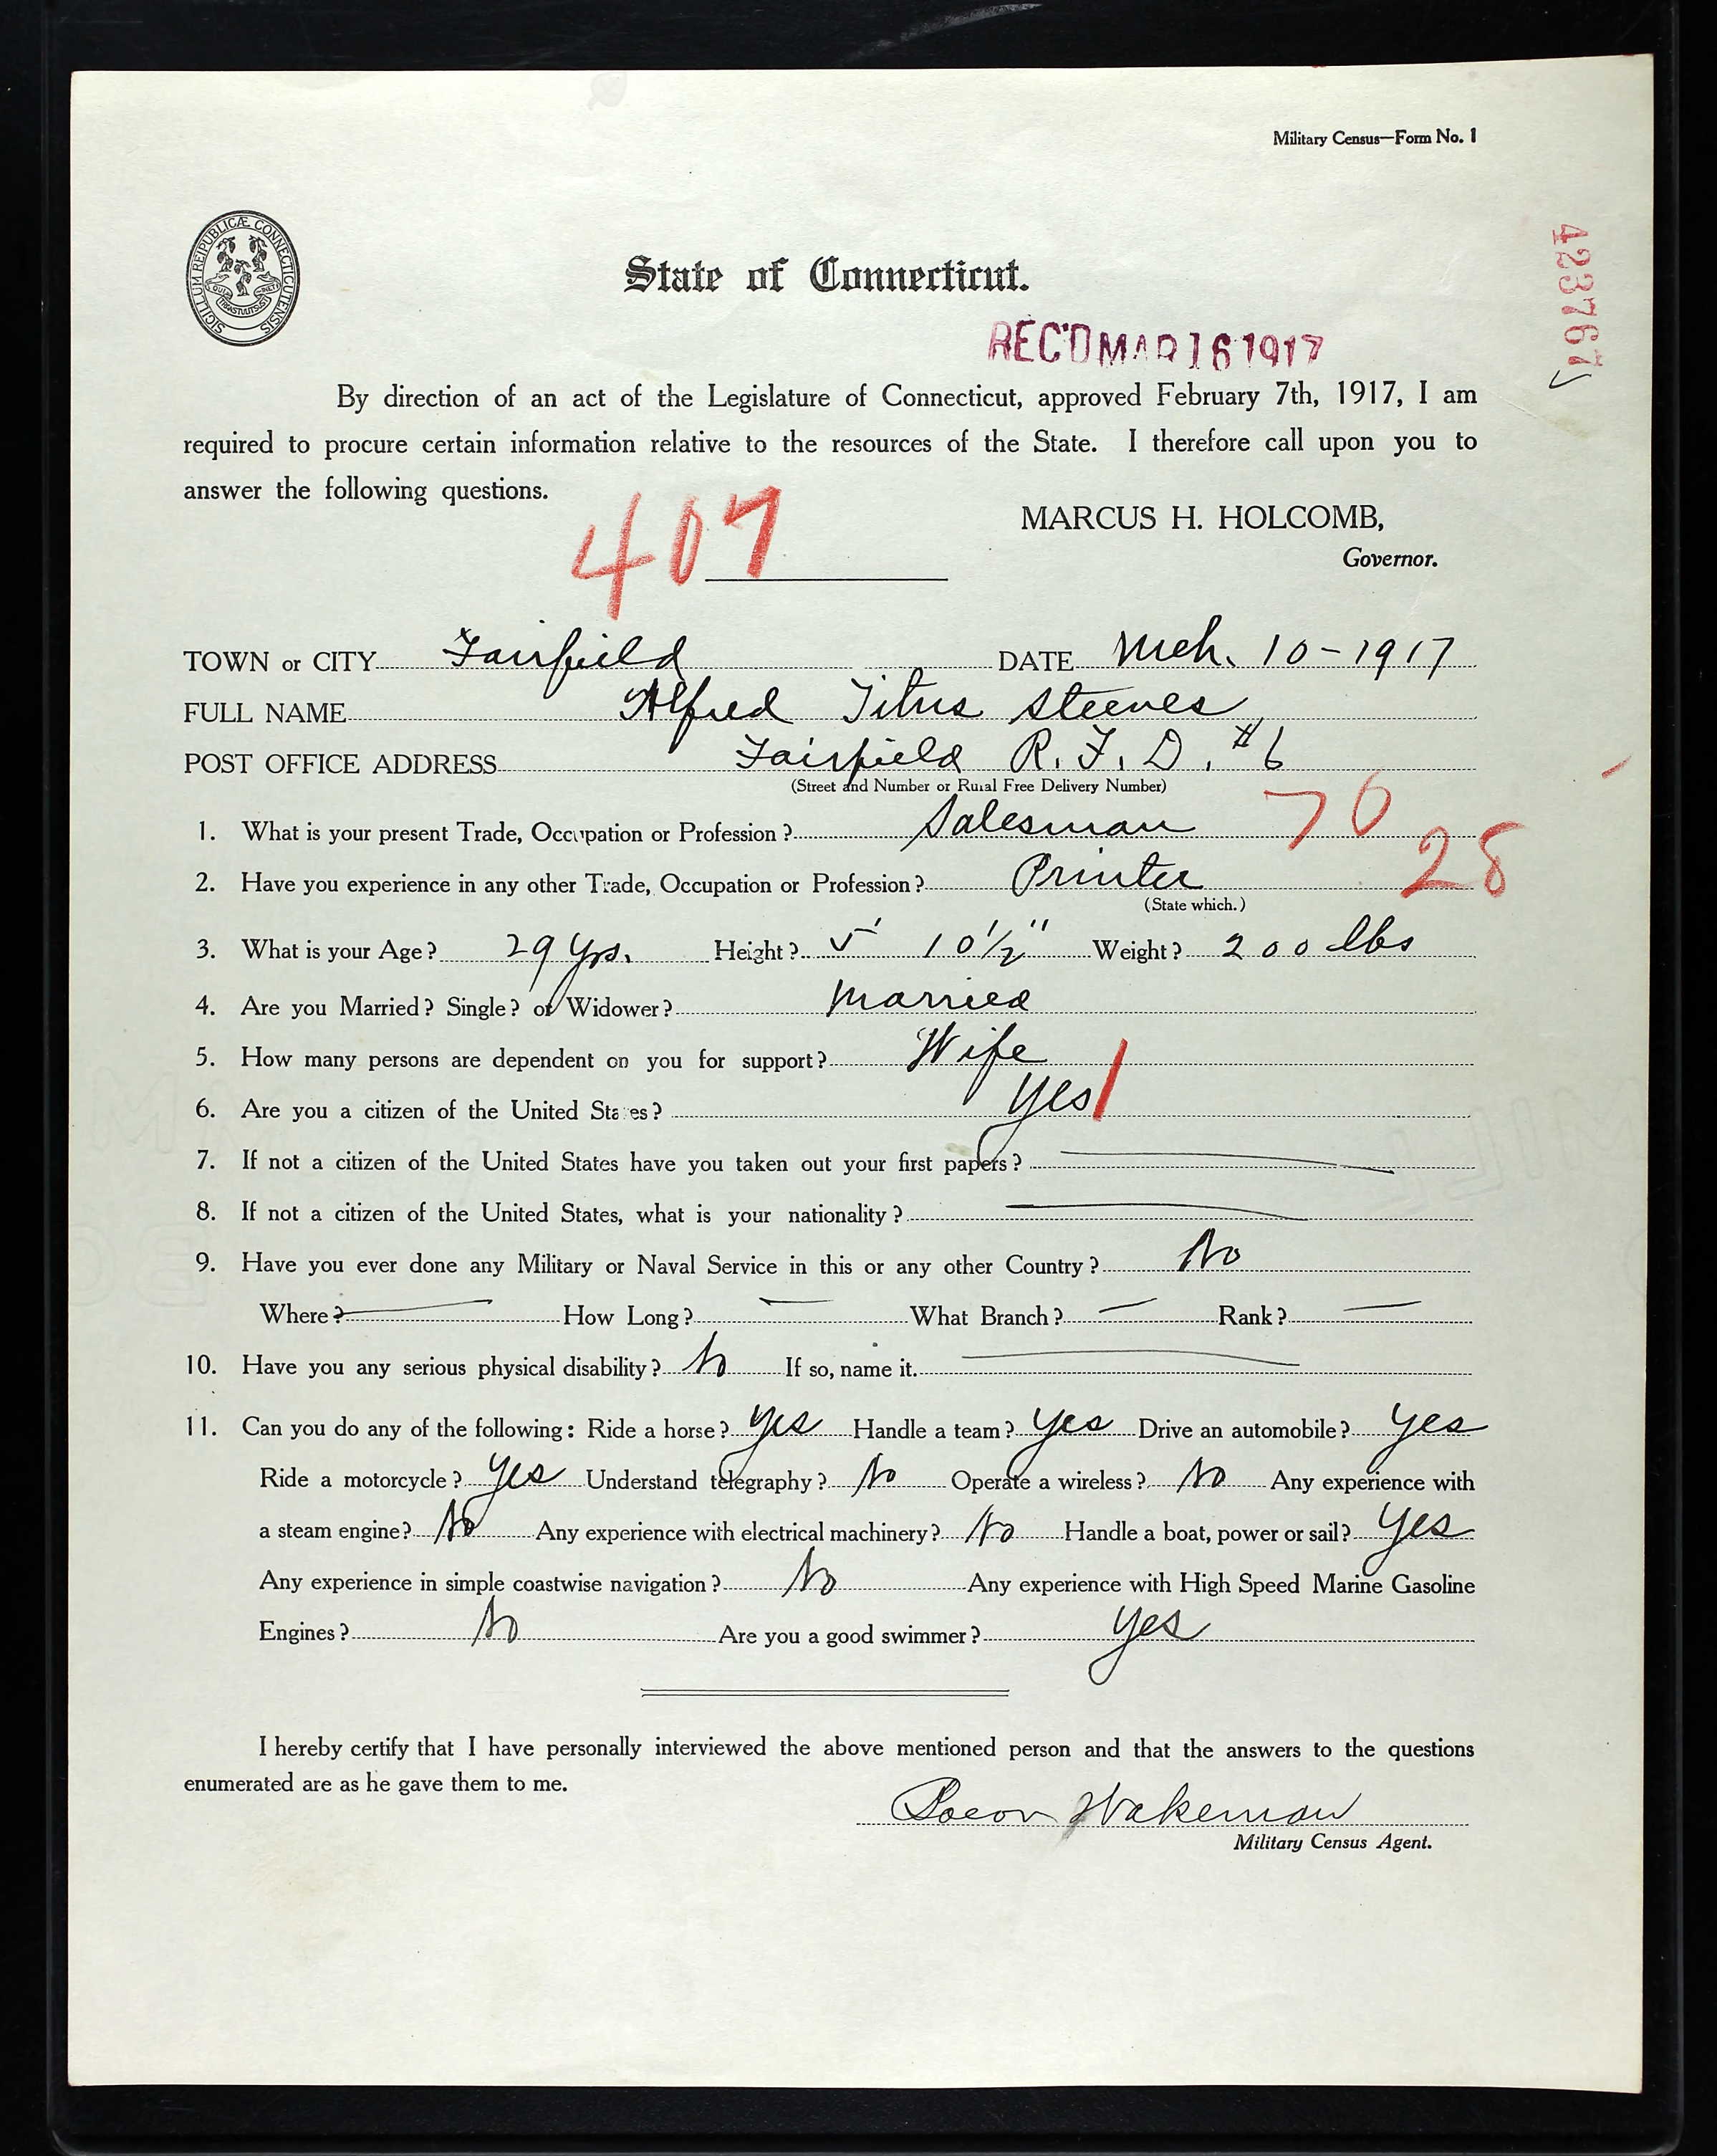 Military Census—Form No. 1
SIGILLUM REIPUBLICÆ CONNECTICUTENSIS
423767
State of Connecticut.
REC'D MAR 16 1917
By direction of an act of the Legislature of Connecticut, approved February 7th, 1917, I am
required to procure certain information relative to the resources of the State. I therefore call upon you to
answer the following questions.
407
MARCUS H. HOLCOMB,
Governor.
TOWN or CITY Fairfield DATE Mch. 10-1917
FULL NAME Alfred Titus Steeves
POST OFFICE ADDRESS Fairfield R.F.D. #6
(Street and Number or Rural Free Delivery Number)
1. What is your present Trade, Occupation or Profession? Salesman 70
2. Have you experience in any other Trade, Occupation or Profession? Printer 28
(State which.)
3. What is your Age? 29 yrs. Height? 5' 10½" Weight? 200 lbs
4. Are you Married? Single? or Widower? Married
5. How many persons are dependent on you for support? Wife 1
6. Are you a citizen of the United States? Yes
7. If not a citizen of the United States have you taken out your first papers?
8. If not a citizen of the United States, what is your nationality?
9. Have you ever done any Military or Naval Service in this or any other Country? No
Where? — How Long? — What Branch? — Rank? —
10. Have you any serious physical disability? No If so, name it.
11. Can you do any of the following: Ride a horse? Yes Handle a team? Yes Drive an automobile? Yes
Ride a motorcycle? Yes Understand telegraphy? No Operate a wireless? No Any experience with
a steam engine? No Any experience with electrical machinery? No Handle a boat, power or sail? Yes
Any experience in simple coastwise navigation? No Any experience with High Speed Marine Gasoline
Engines? No Are you a good swimmer? Yes
I hereby certify that I have personally interviewed the above mentioned person and that the answers to the questions
enumerated are as he gave them to me.
Wakeman
Military Census Agent.